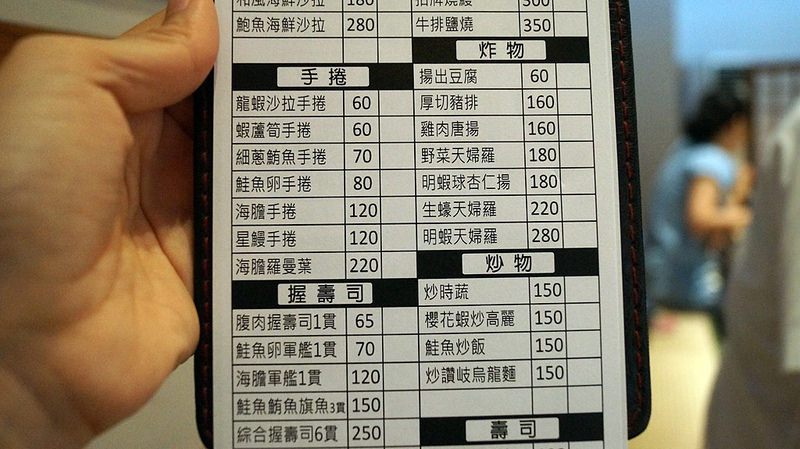 和風海鮮沙拉 180
鮑魚海鮮沙拉 280
手捲
龍蝦沙拉手捲 60
蝦蘆筍手捲 60
細蔥鮪魚手捲 70
鮭魚卵手捲 80
海膽手捲 120
星鰻手捲 120
海膽羅曼葉 220
握壽司
腹肉握壽司1貫 65
鮭魚卵軍艦1貫 70
海膽軍艦1貫 120
鮭魚鮪魚旗魚3貫 150
綜合握壽司6貫 250
300
牛排鹽燒 350
炸物
揚出豆腐 60
厚切豬排 160
雞肉唐揚 160
野菜天婦羅 180
明蝦球杏仁揚 180
生蠔天婦羅 220
明蝦天婦羅 280
炒物
炒時蔬 150
櫻花蝦炒高麗 150
鮭魚炒飯 150
炒讚岐烏龍麵 150
壽司